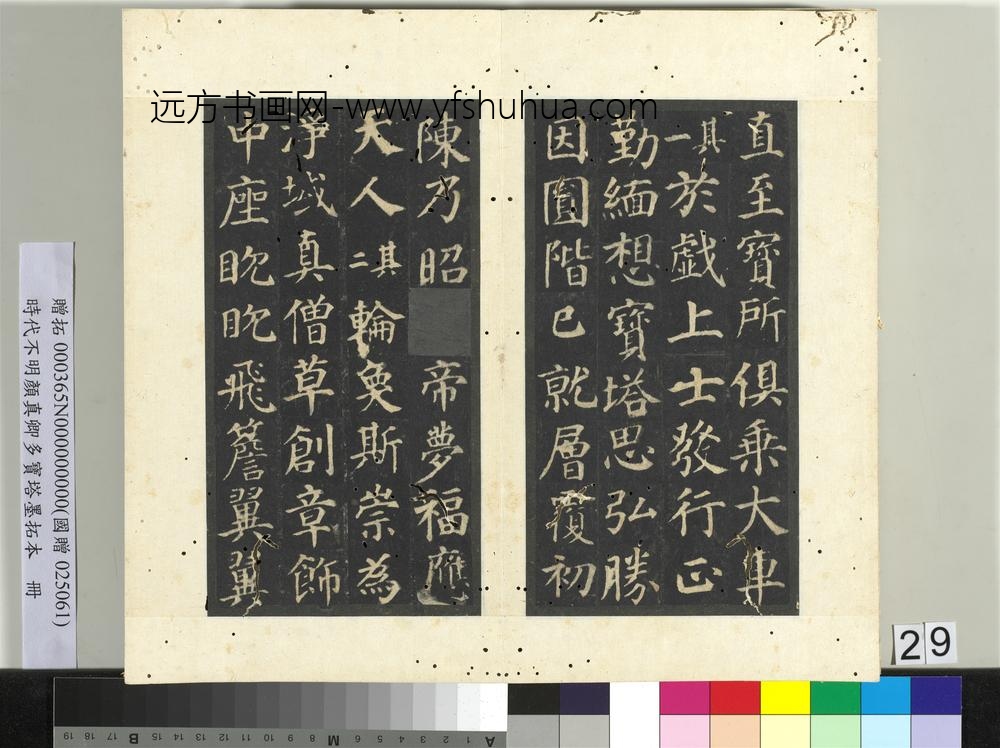 远方书画网-www.yfshuhua.com
直至寶所俱乗大車
其一於戯上士發行正
勤緬想寶塔思弘勝
因圓階已就層覆初
陳乃昭帝夢福應
天人其二輪奐斯崇為
淨域真僧草創章飾
中座眈眈飛簷翼翼
贈拓 000365N000000000(國贈 025061)
時代不明顏真卿多寶塔墨拓本 冊
29
A 1 2 3 4 5 6 M 8 9 10 11 12 13 14 15 B 17 18 19